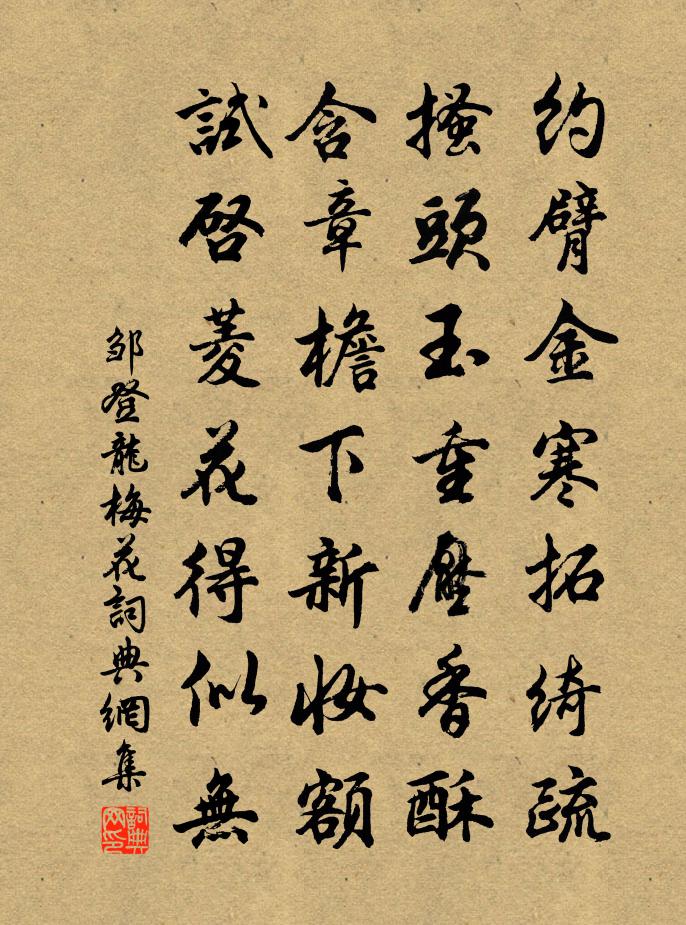 約臂金寒拓綺疏
搔頭玉重壓香酥
含章檐下新妝額
試啓菱花得似無
鄒登龍梅花詞典網集
詞典网印